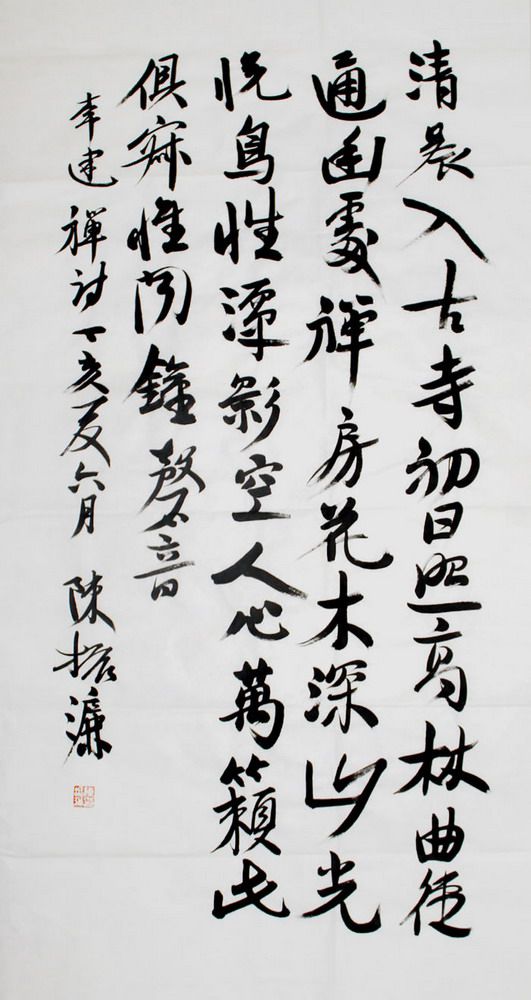 清晨入古寺初日照高林曲徑
通幽處禪房花木深山光
悅鳥性潭影空人心萬籟此
俱寂惟聞鐘磬音
李建禪詩丁亥夏六月 陳振濂